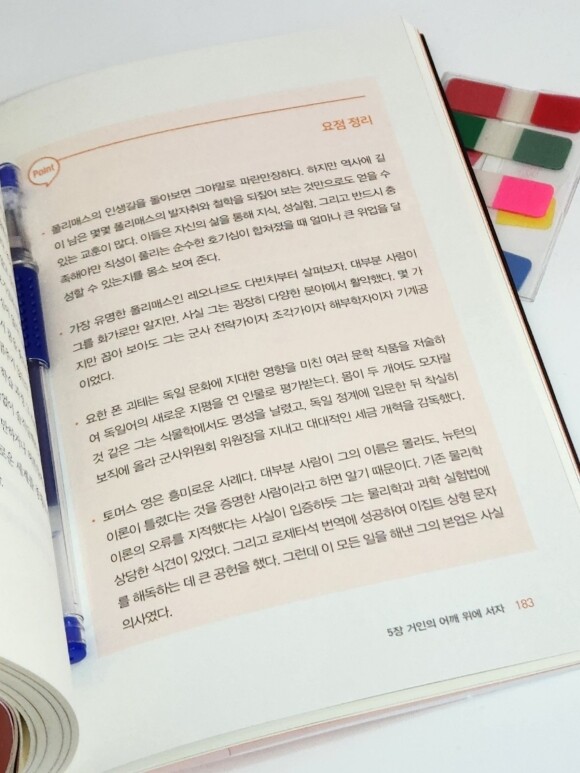 요점 정리
Point
• 폴리매스의 인생길을 돌아보면 그야말로 파란만장하다. 하지만 역사에 길
이 남은 몇몇 폴리매스의 발자취와 철학을 되짚어 보는 것만으로도 얻을 수
있는 교훈이 많다. 이들은 자신의 삶을 통해 지식, 성실함, 그리고 반드시 충
족해야만 직성이 풀리는 순수한 호기심이 합쳐졌을 때 얼마나 큰 위업을 달
성할 수 있는지를 몸소 보여 준다.
• 가장 유명한 폴리매스인 레오나르도 다빈치부터 살펴보자. 대부분 사람이
그를 화가로만 알지만, 사실 그는 굉장히 다양한 분야에서 활약했다. 몇 가
지만 꼽아 보아도 그는 군사 전략가이자 조각가이자 해부학자이자 기계공
이었다.
• 요한 폰 괴테는 독일 문화에 지대한 영향을 미친 여러 문학 작품을 저술하
여 독일어의 새로운 지평을 연 인물로 평가받는다. 몸이 두 개여도 모자랄
것 같은 그는 식물학에서도 명성을 날렸고, 독일 정계에 입문한 뒤 착실히
보직에 올라 군사위원회 위원장을 지내고 대대적인 세금 개혁을 감독했다.
• 토머스 영은 흥미로운 사례다. 대부분 사람이 그의 이름은 몰라도, 뉴턴의
이론이 틀렸다는 것을 증명한 사람이라고 하면 알기 때문이다. 기존 물리학
이론의 오류를 지적했다는 사실이 입증하듯 그는 물리학과 과학 실험법에
상당한 식견이 있었다. 그리고 로제타석 번역에 성공하여 이집트 상형 문자
를 해독하는 데 큰 공헌을 했다. 그런데 이 모든 일을 해낸 그의 본업은 사실
의사였다.
5장 거인의 어깨 위에 서자 183